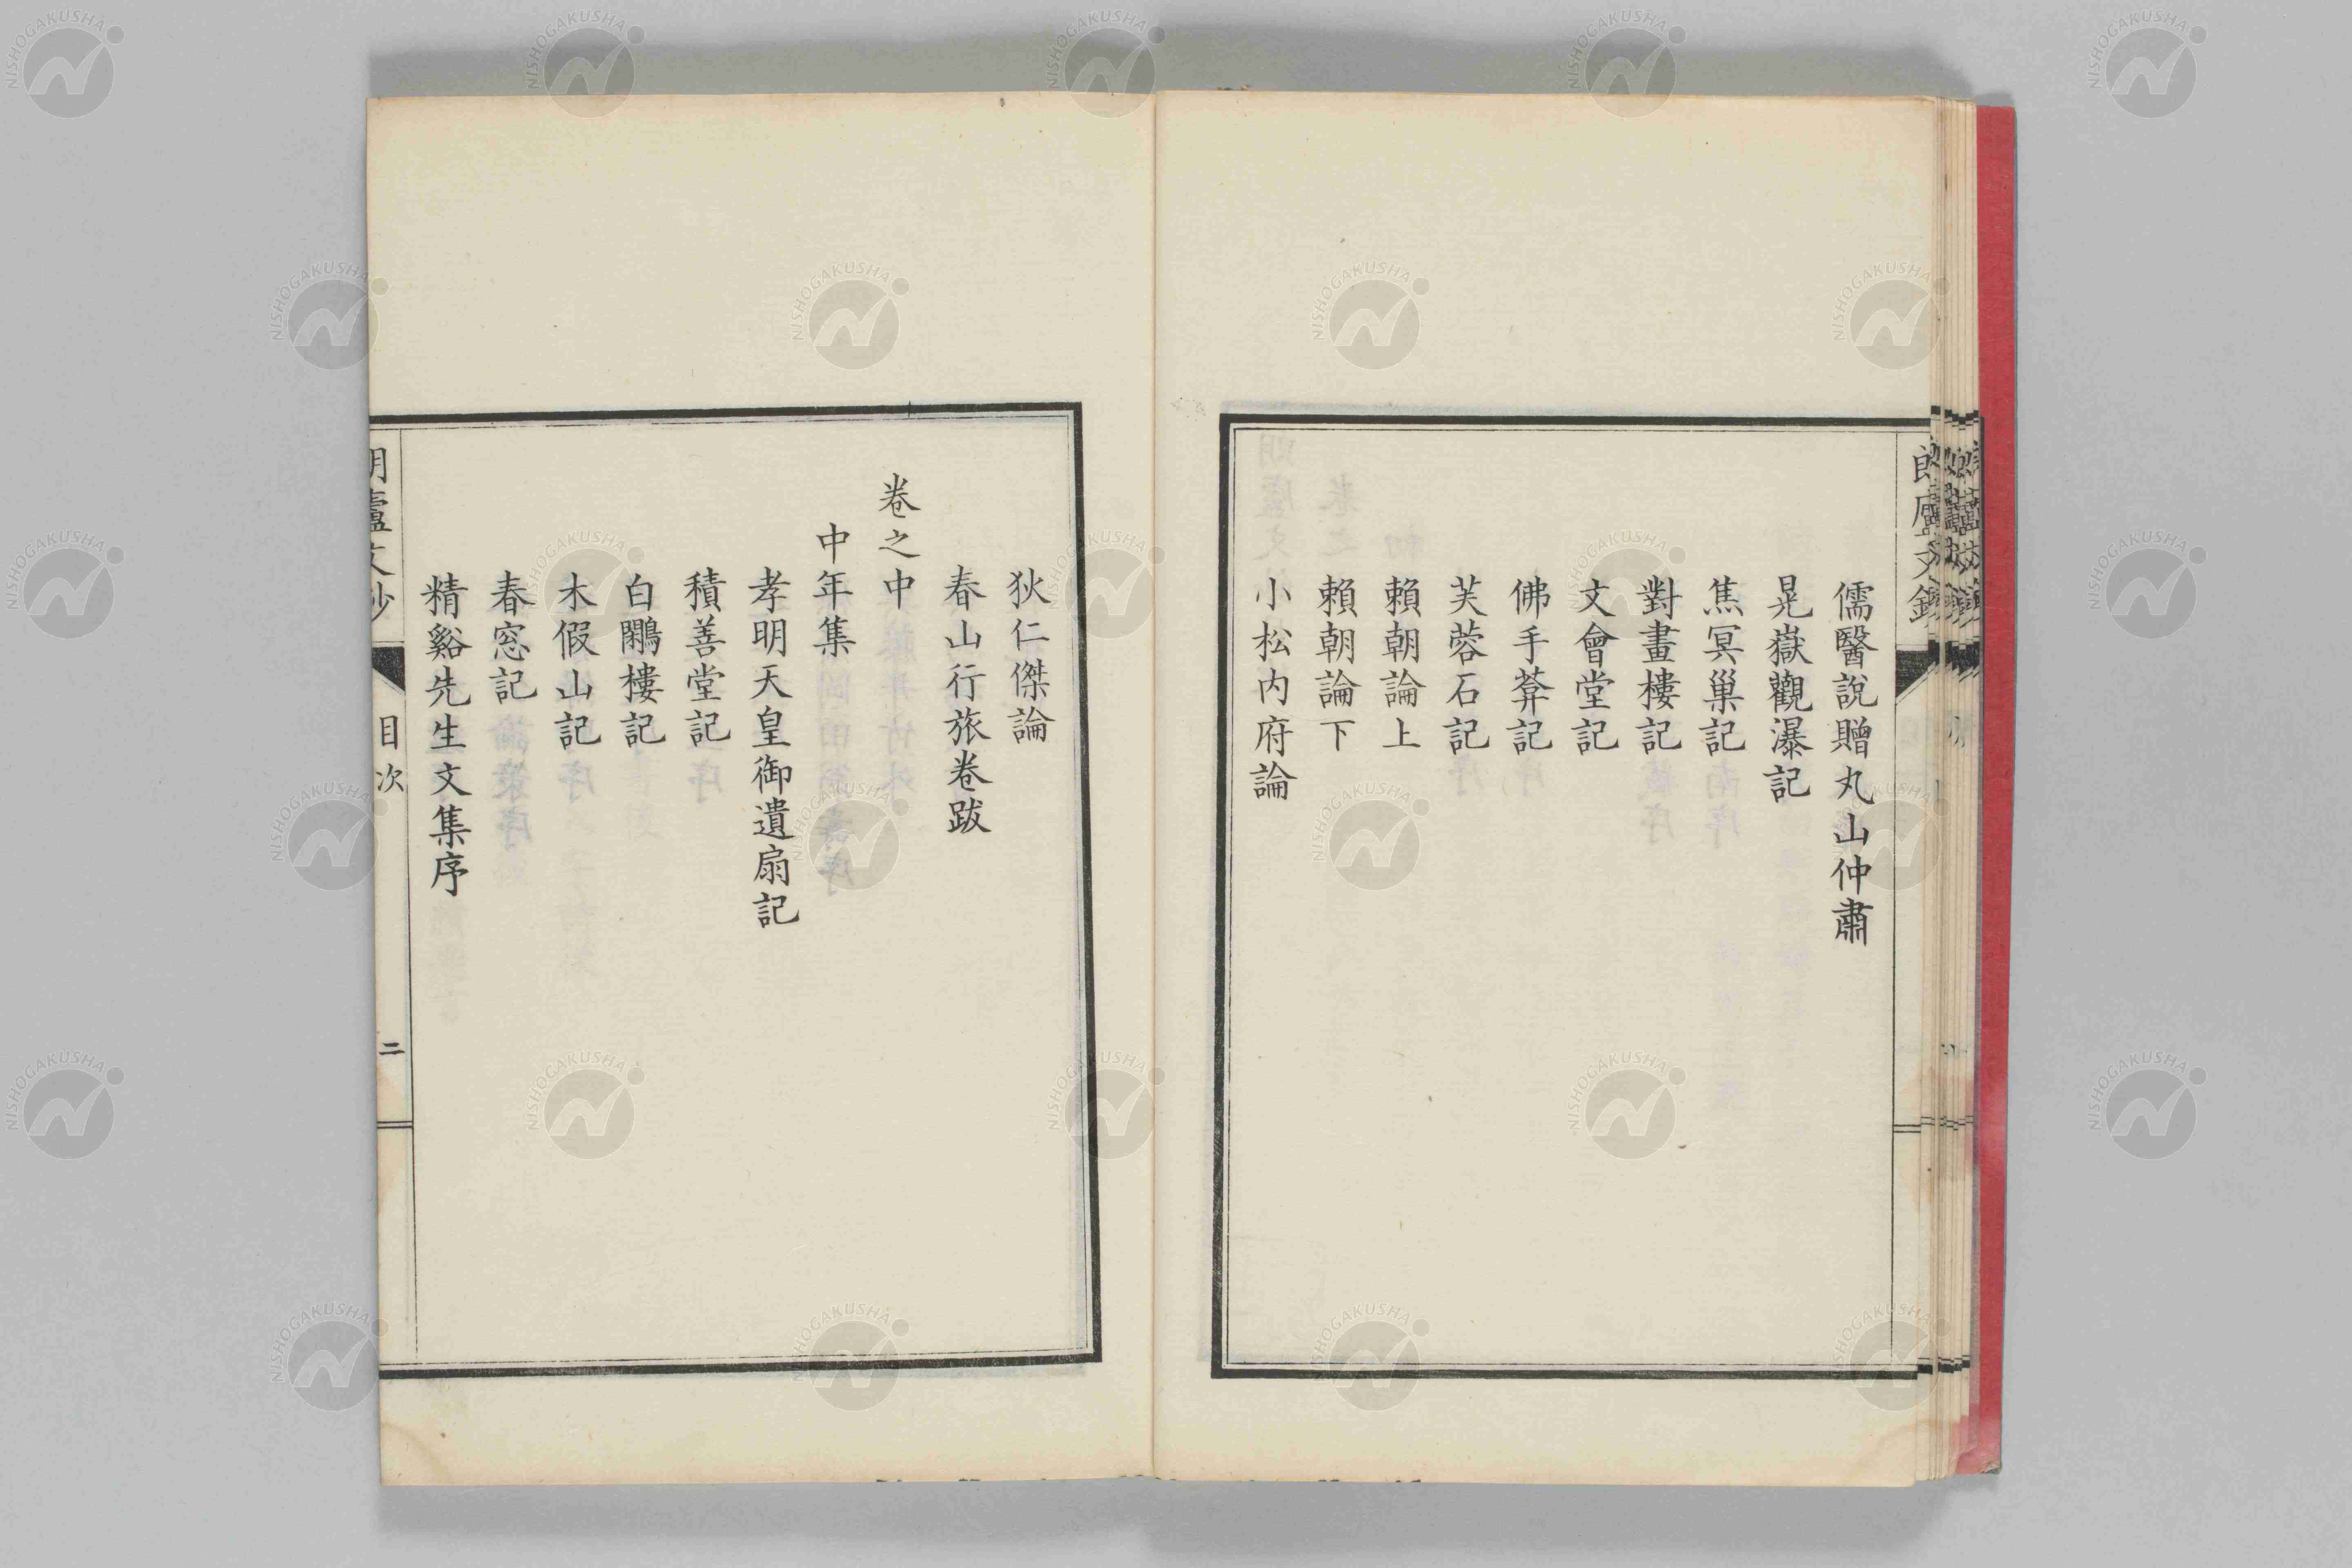 儒醫說贈丸山仲肅
晃嶽觀瀑記
焦冥巢記
對畫樓記
文會堂記
佛手葊記
芙蓉石記
賴朝論上
賴朝論下
小松內府論
狄仁傑論
春山行旅卷跋
卷之中
中年集
孝明天皇御遺扇記
積善堂記
白鷳樓記
木假山記
春窓記
精谿先生文集序
目次
二
NISHOGAKUSHA